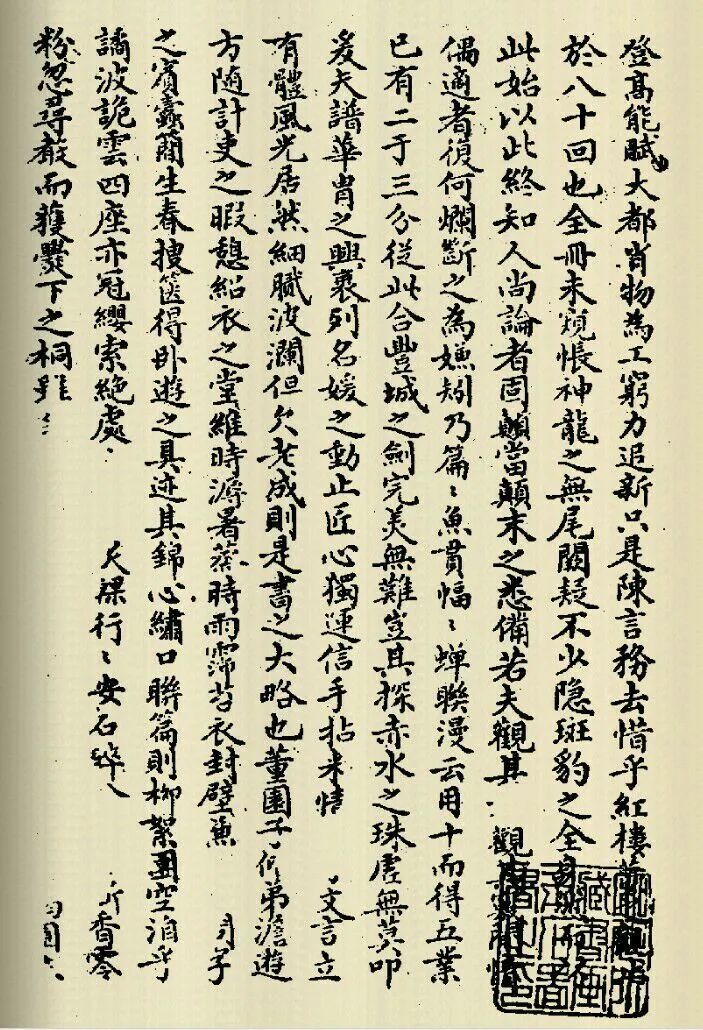 登高能賦大都肖物為工窮力追新只是陳言務去惜乎紅樓
於八十回也全冊未窺悵神龍之無尾闕疑不少隐斑豹之全
此始以此終知人尚論者固顛當顛末之悉備若夫觀其觀
偶適者復何爛斷之為嫌矧乃篇、魚貫幅、蝉聯漫云用十而得五業
已有二于三分從此合豐城之劍完美無難豈其探赤水之珠虛無莫叩
爰夫譜華冑之興衰列名媛之動止匠心獨運信手拈来情文言立
有體風光居然細膩波瀾但欠老成則是書之大略也董園子弟澹遊
方隨計吏之暇憩紹衣之堂維時溽暑蒸時雨霈苔衣封壁魚字
之賓蠹簡生春搜篋得卧遊之具迹其錦心繡口聯篇則柳絮團空洎乎
譎波詭雲四座亦冠纓索絶處行、安石碎香零
粉忽尋教而獲爨下之桐雖